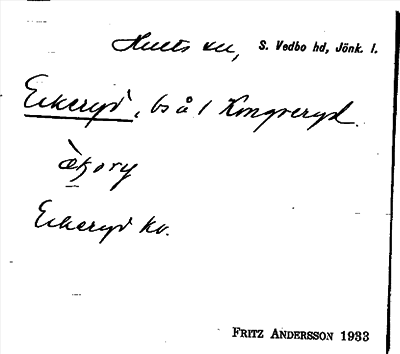 Hults sn, S. Vedbo hd, Jönk. l.
Ekeryd, bs å 1 Kongseryd.
Ekeryd kv.
FRITZ ANDERSSON 1933